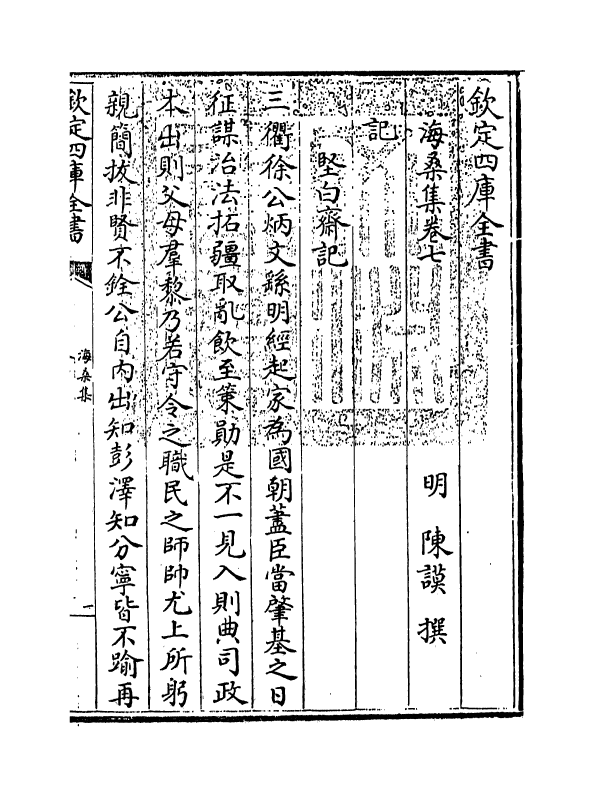 欽定四庫全書
海桑集卷七
明 陳謨 撰
記
堅白齋記
三衢徐公炳文繇明經起家為國朝藎臣當肇基之日
征謀治法拓疆取亂飲至策勛是不一見入則典司政
本出則父母羣黎乃若守令之職民之師帥尤上所躬
親簡拔非賢不銓公自內出知彭澤知分寧皆不踰再
欽定四庫全書
海桑集
一